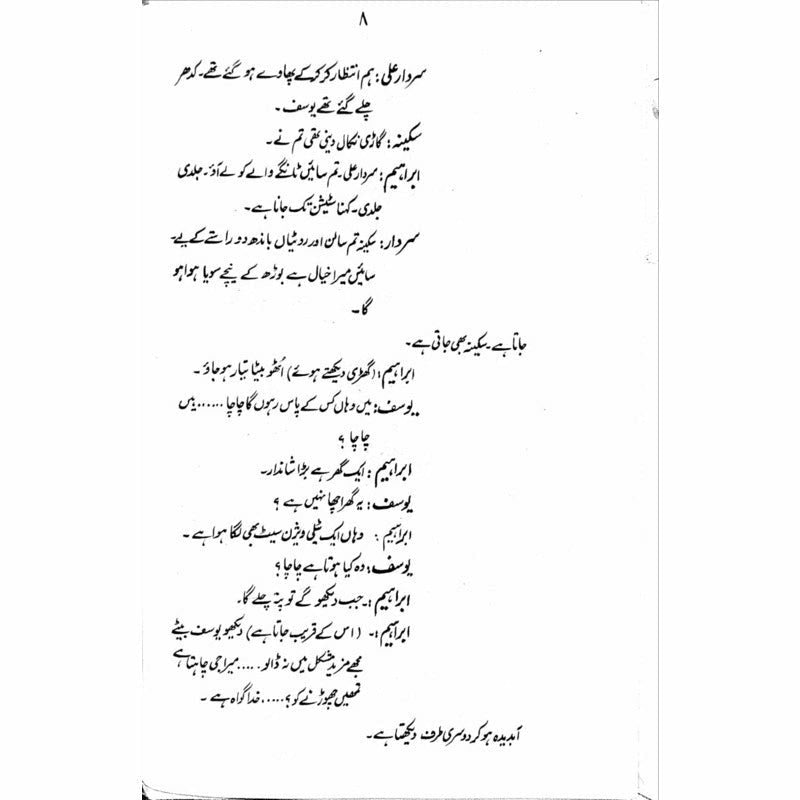 ۸
سردار علی: ہم انتظار کر کر کے پھاوے ہو گئے تھے۔ کدھر
چلے گئے تھے یوسف۔
سکینہ: گاڑی نکال دینی تھی تم نے۔
ابراہیم: سردار علی۔ تم سائیں ٹانگے والے کو لے آؤ۔ جلدی
جلدی۔ کہنا سٹیشن تک جانا ہے۔
سردار: سکینہ تم سالن اور روٹیاں باندھ دو راستے کے لیے۔
سائیں میرا خیال ہے بوڑھ کے نیچے سویا ہوا ہو
گا۔
جاتا ہے۔ سکینہ بھی جاتی ہے۔
ابراہیم: (گھڑی دیکھتے ہوئے) اُٹھو بیٹا تیار ہو جاؤ۔
یوسف: میں وہاں کس کے پاس رہوں گا چاچا ...... میں
چاچا ؟
ابراہیم: ایک گھر ہے بڑا شاندار۔
یوسف: یہ گھر اچھا نہیں ہے ؟
ابراہیم: وہاں ایک ٹیلی ویژن سیٹ بھی لگا ہوا ہے۔
یوسف: وہ کیا ہوتا ہے چاچا ؟
ابراہیم:۔ جب دیکھو گے تو پتہ چلے گا۔
ابراہیم:۔ (اس کے قریب جاتا ہے) دیکھو یوسف بیٹے
مجھے مزید مشکل میں نہ ڈالو ..... میرا جی چاہتا ہے
تمھیں چھوڑنے کو ؟ ..... خدا گواہ ہے۔
آبدیدہ ہو کر دوسری طرف دیکھتا ہے۔